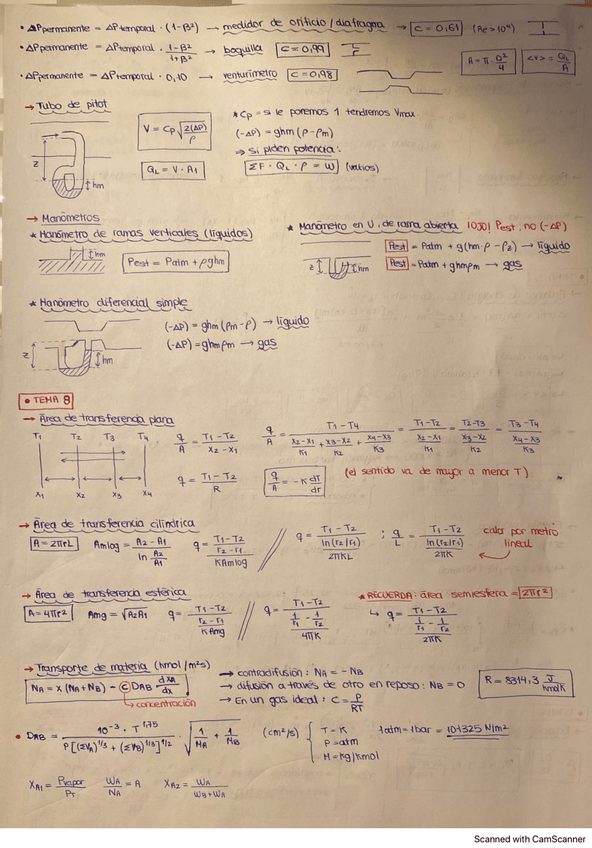 • ΔPpermanente = ΔPtemporal · (1-β²) → medidor de orificio / diafragma → C = 0,61 (Re>10⁴)
• ΔPpermanente = ΔPtemporal · (1-β²)/(1+β²) → boquilla C = 0,99 A = π · D²/4 <v> = QL/A
• ΔPpermanente = ΔPtemporal · 0,10 → venturímetro C = 0,98
→ Tubo de pitot
V = Cp √(2(ΔP)/ρ)
QL = V · A1
z hm
* Cp = si le poremos 1 tendremos Vmax
(-ΔP) = ghm (ρ - ρm)
⇒ Si piden potencia:
ΣF · QL · ρ = W (vatios)
→ Manómetros
* Manómetro de ramas verticales (líquidos)
hm Pest = Patm + ρghm
* Manómetro en U, de rama abierta ¡OJO! Pest, no (-ΔP)
Pest = Patm + g(hm ρ - ρz) → líquido
Pest = Patm + ghmρm → gas
z hm
* Manómetro diferencial simple
(-ΔP) = ghm (ρm - ρ) → líquido
(-ΔP) = ghmρm → gas
z hm
• TEMA 8
→ Área de transferencia plana
T1 T2 T3 T4
x1 x2 x3 x4
q/A = (T1 - T2)/(x2 - x1)
q/A = (T1 - T4)/((x2-x1)/K1 + (x3-x2)/K2 + (x4-x3)/K3) = (T1-T2)/((x2-x1)/K1) = (T2-T3)/((x3-x2)/K2) = (T3-T4)/((x4-x3)/K3)
q = (T1 - T2)/R q/A = -K dT/dr (el sentido va de mayor a menor T)
→ Área de transferencia cilíndrica
A = 2πrL Amlog = (A2 - A1)/(ln A2/A1) q = (T1 - T2)/((r2 - r1)/(KAmlog)) // q = (T1 - T2)/(ln(r2/r1)/(2πKL)) ; q/L = (T1 - T2)/(ln(r2/r1)/(2πK)) calor por metro lineal
→ Área de transferencia esférica
A = 4πr² Amg = √(A2A1) q = (T1 - T2)/((r2 - r1)/(KAmg)) // q = (T1 - T2)/((1/r1 - 1/r2)/(4πK))
* RECUERDA: área semiesfera = 2πr²
↳ q = (T1 - T2)/((1/r1 - 1/r2)/(2πK))
→ Transporte de materia (kmol/m²s)
NA = x (NA + NB) - C DAB dxA/dx
concentración
→ contradifusión: NA = -NB
→ difusión a través de otro en reposo: NB = 0
→ En un gas ideal: C = P/RT
R = 8314,3 J/kmolK
• DAB = (10⁻³ · T^1,75)/(P[(ΣVA)^1/3 + (ΣVB)^1/3]^2) · √(1/MA + 1/MB) (cm²/s)
T = K
P = atm
M = Kg/Kmol
1 atm = 1 bar = 101325 N/m²
XA1 = Pvapor/PT WA/NA = A XA2 = WA/(WB+WA)
Scanned with CamScanner